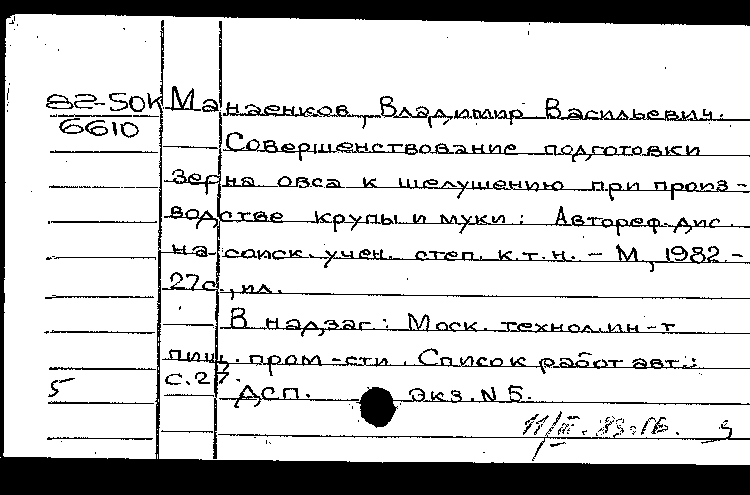 82-50К Манаенков, Владимир Васильевич.
6610
Совершенствование подготовки
зерна овса к шелушению при произ-
водстве крупы и муки: Автореф. дис.
на соиск. учен. степ. к.т.н. - М, 1982.-
27с., ил.
В надзаг: Моск. технол. ин-т
пищ. пром-сти. Список работ авт.:
с. 27.
5 ДСП. Экз. N 5.
11/III-83г.